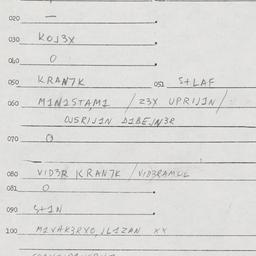 020 —
030 KOJ3X
040 O
050 KRAN7K 051 S+LAF
060 M1N1STAM1 / Z3X UPRIJ1N /
OJSRIJ1N D1BEJN3R
070 O
080 VID3R KRAN7K / VID3RAMUL
081 O
090 S+1N
100 M1VAK3RXO, JL1ZAN XX